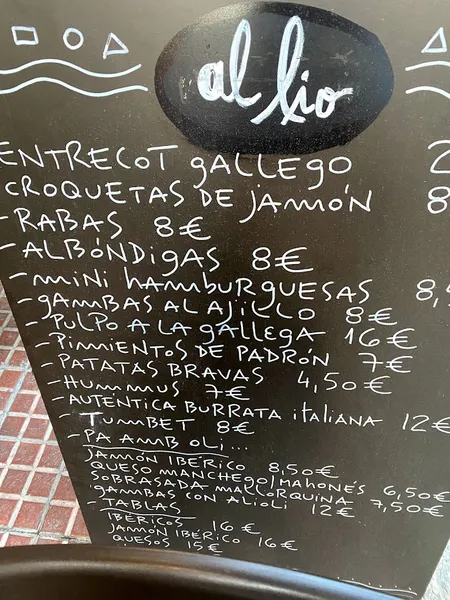 al lio
ENTRECOT GALLEGO 2
CROQUETAS DE JAMÓN 8
- RABAS 8€
- ALBÓNDIGAS 8€
- MINI HAMBURGUESAS 8,
- GAMBAS AL AJILLO 8€
- PULPO A LA GALLEGA 16€
- PIMIENTOS DE PADRÓN 7€
- PATATAS BRAVAS 4,50€
- HUMMUS 7€
- AUTENTICA BURRATA ITALIANA 12€
- TUMBET 8€
- PA AMB OLI...
JAMÓN IBÉRICO 8,50€
QUESO MANCHEGO/MAHONÉS 6,50€
SOBRASADA MALLORQUINA 7,50€
GAMBAS CON ALIOLI 12€
- TABLAS
IBÉRICOS 16€
JAMÓN IBÉRICO 16€
QUESOS 15€